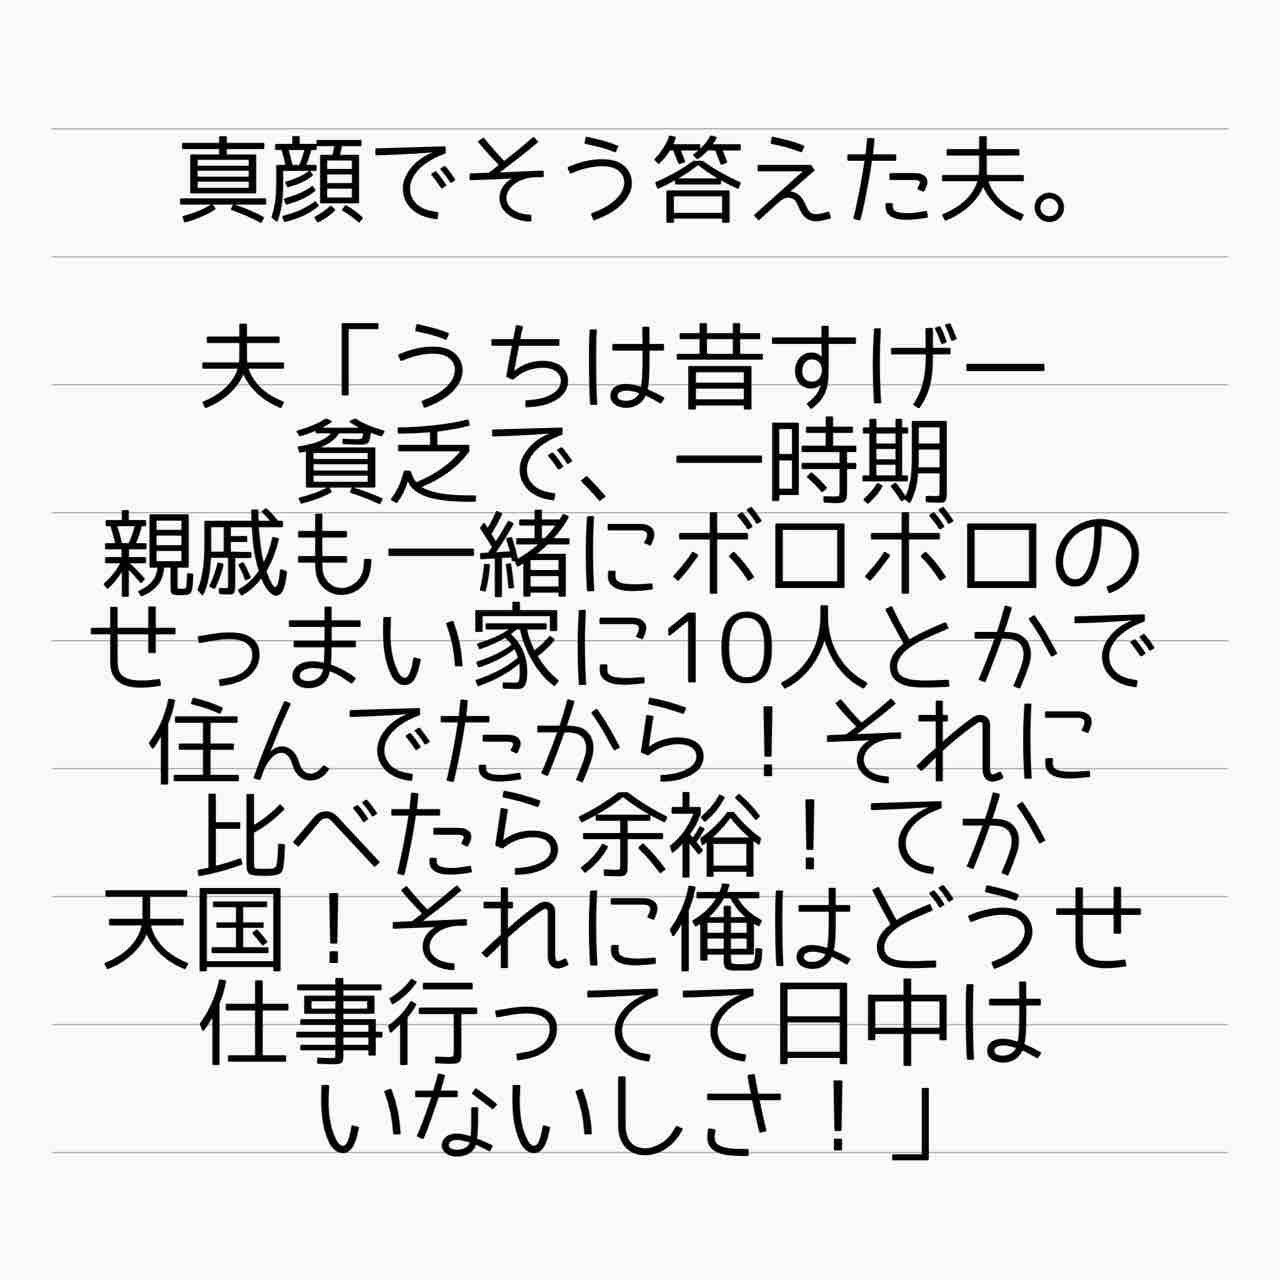 真顔でそう答えた夫。
夫「うちは昔すげー
貧乏で、一時期
親戚も一緒にボロボロの
せっまい家に10人とかで
住んでたから！それに
比べたら余裕！てか
天国！それに俺はどうせ
仕事行ってて日中は
いないしさ！」